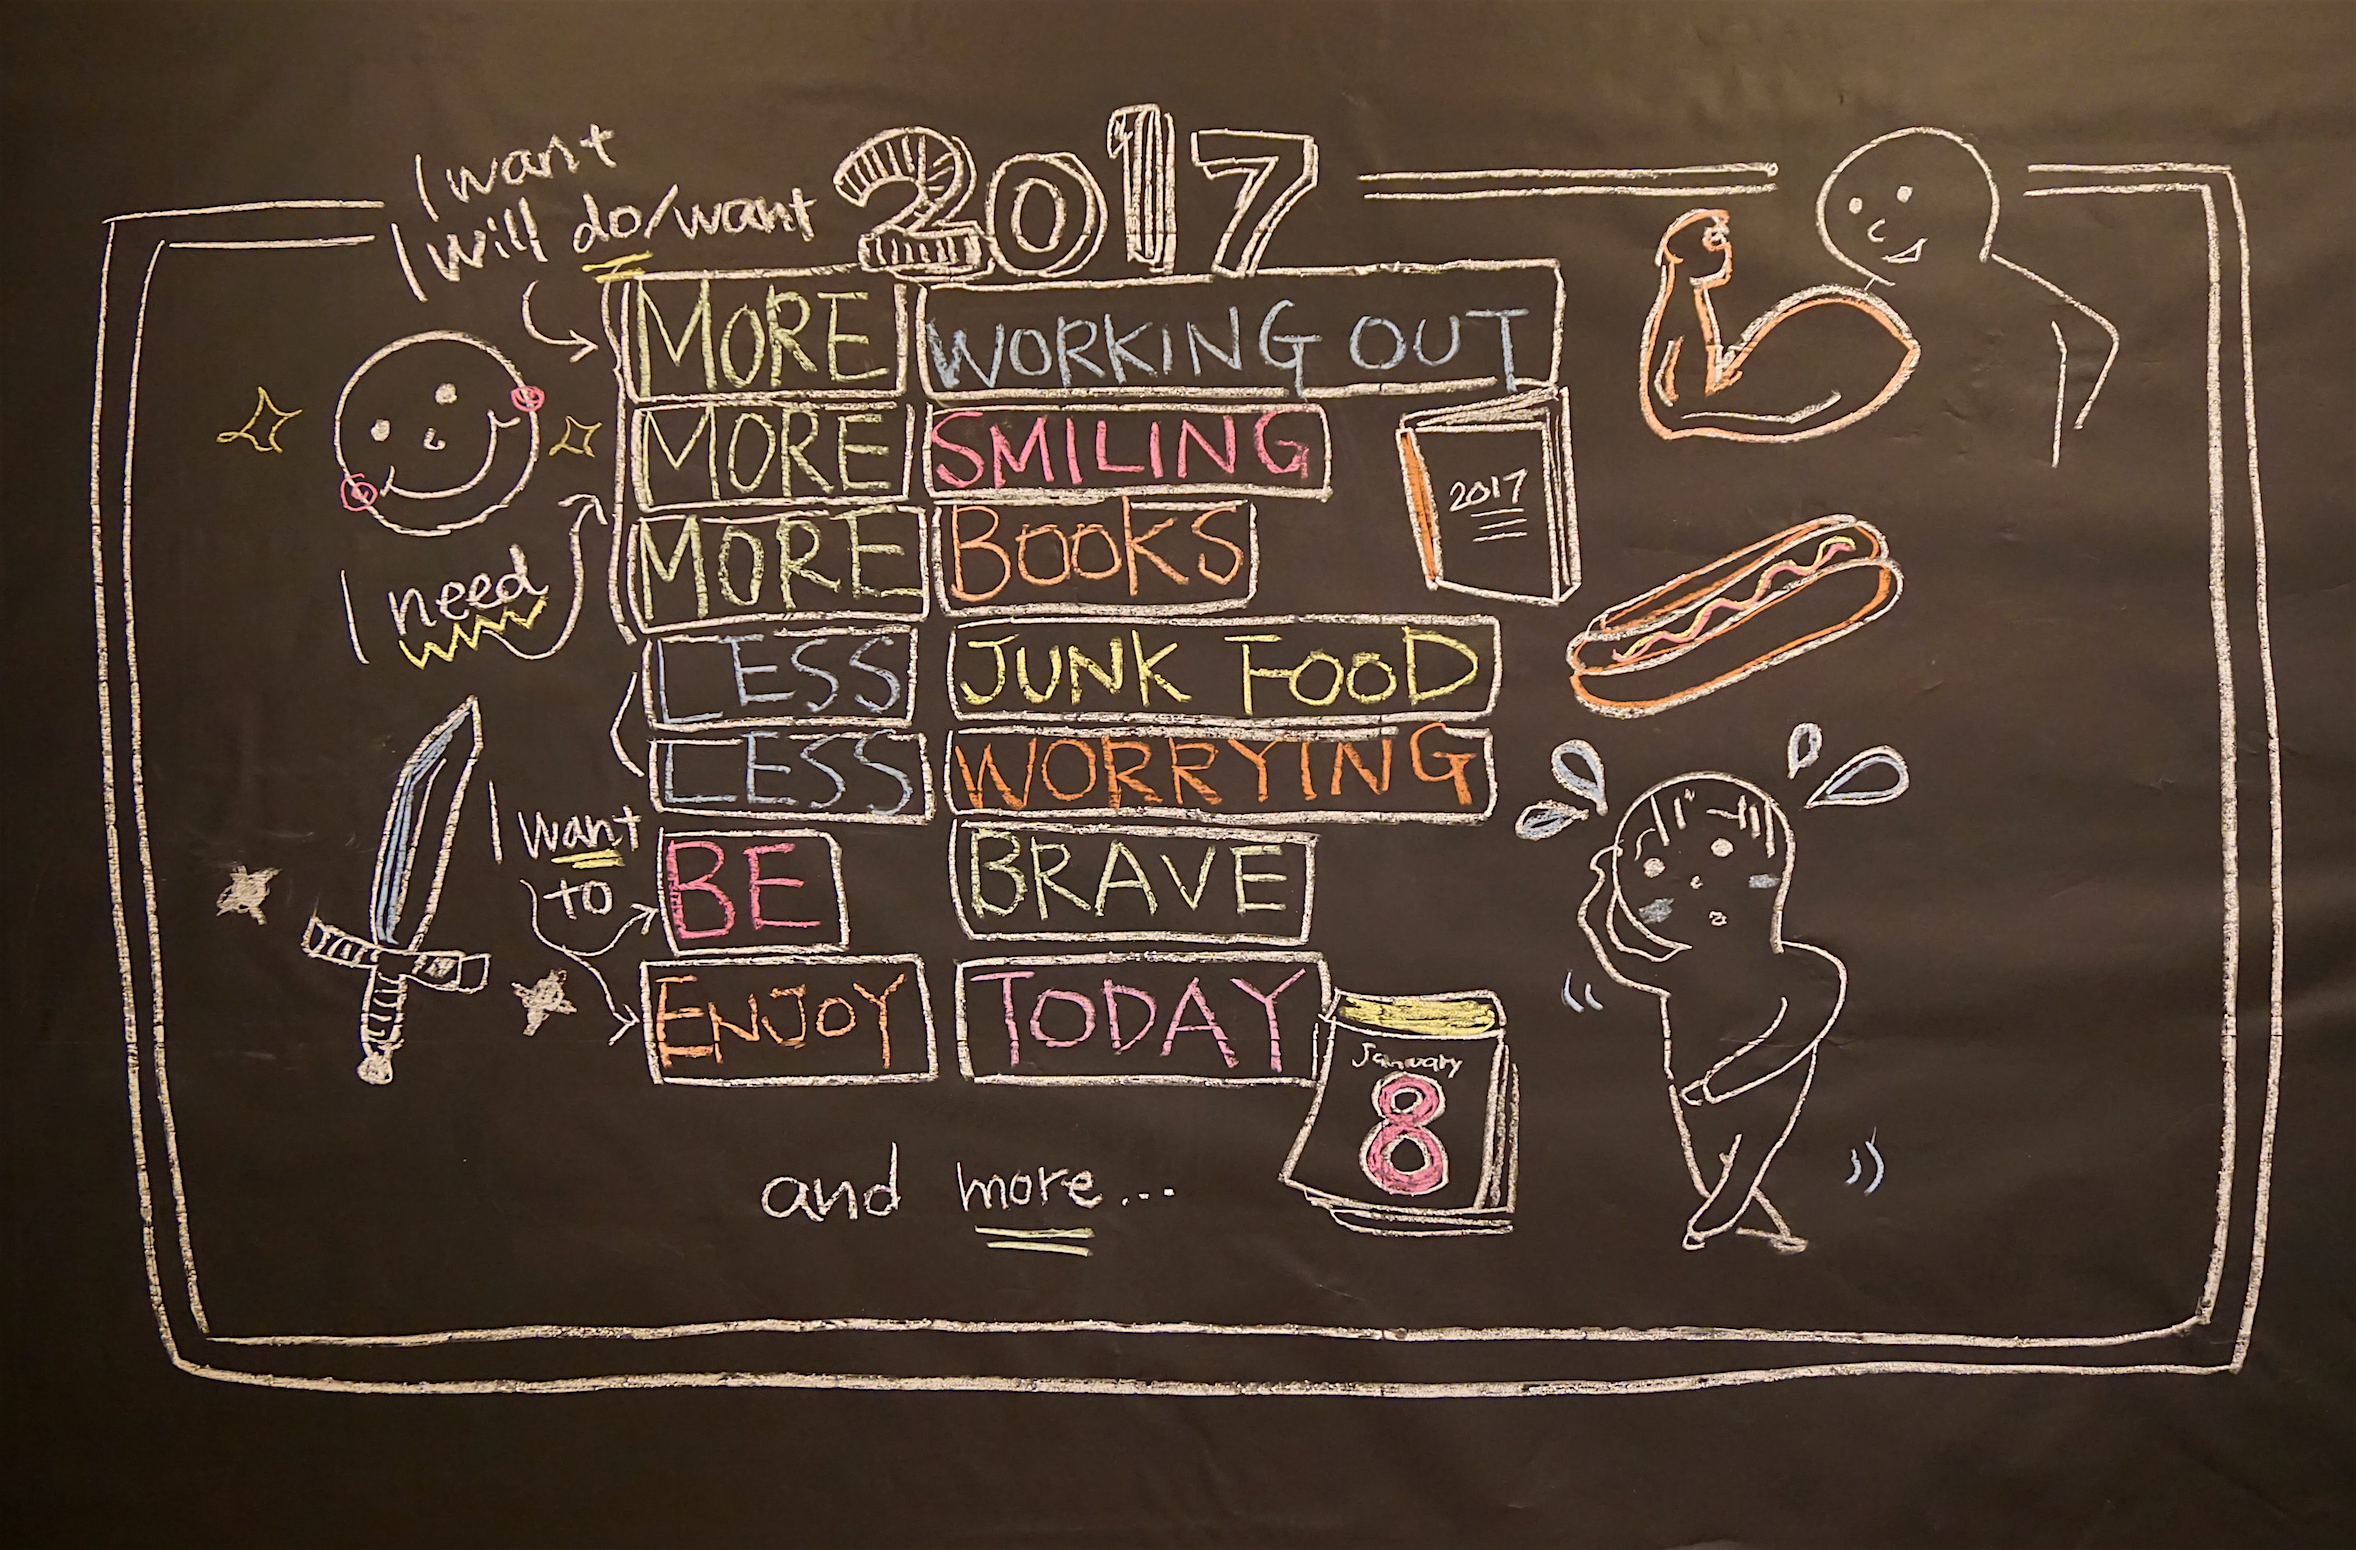 2017
I want
I will do/want
MORE WORKING OUT
MORE SMILING
MORE BOOKS
2017
I need
LESS JUNK FOOD
LESS WORRYING
I want
to
BE BRAVE
ENJOY TODAY
January
8
and more...